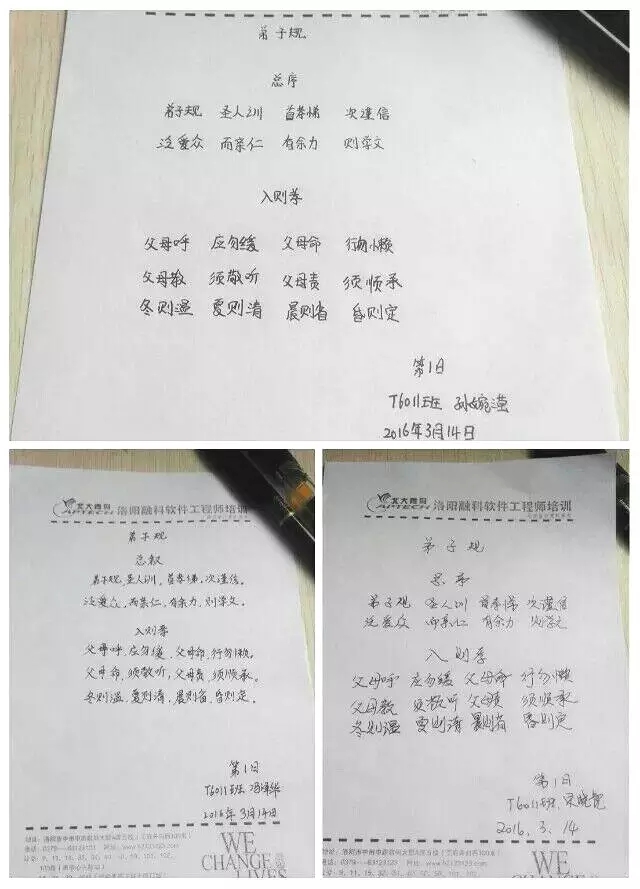 弟子规
总序
弟子规 圣人训 首孝悌 次谨信
泛爱众 而亲仁 有余力 则学文
入则孝
父母呼 应勿缓 父母命 行勿懒
父母教 须敬听 父母责 须顺承
冬则温 夏则清 晨则省 昏则定
第1日
T6011班 孙婉滢
2016年3月14日
北大青鸟
APTECH 洛阳融科软件工程师培训
弟子规
总叙
弟子规,圣人训,首孝悌,次谨信。
泛爱众,而亲仁,有余力,则学文。
入则孝
父母呼,应勿缓,父母命,行勿懒。
父母命,须敬听,父母责,须顺承。
冬则温,夏则清,晨则省,昏则定。
第1日
T6011班 冯泽华
2016年3月14日
WE
CHANGE
LIVES
北大青鸟
APTECH 洛阳融科软件工程师培训
弟子规
总序
弟子规 圣人训 首孝悌 次谨信
泛爱众 而亲仁 有余力 则学文
入则孝
父母呼 应勿缓 父母命 行勿懒
父母教 须敬听 父母责 须顺承
冬则温 夏则清 晨则省 昏则定
第1日
T6011班
2016.3.14
WE
CHANGE